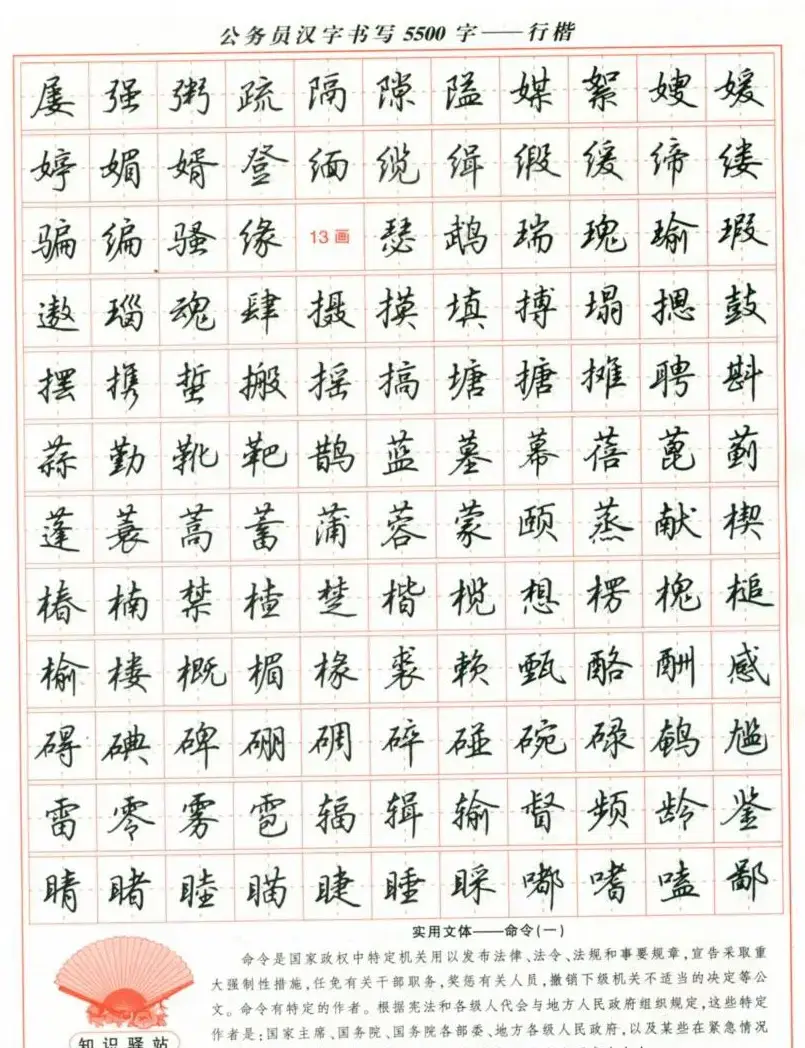 公务员汉字书写5500字——行楷
屡强粥疏隔隙隘媒絮嫂媛
婷媚婿登缅缆缉缎缓缔缕
骗编骚缘13画瑟鹉瑞瑰瑜瑕
遨瑙魂肆摄摸填搏塌摁鼓
摆携蜇搬摇搞塘搪摊聘斟
蒜勤靴靶鹊蓝墓幕蓓蓖蓟
蓬蓑蒿蓄蒲蓉蒙颐蒸献楔
椿楠禁楂楚楷榄想楞槐槌
榆楼概楣椽裘赖甄酪酬感
碍碘碑硼碉碎碰碗碌鹌尴
雷零雾雹辐辑输督频龄鉴
睛睹睦瞄睫睡睬嘟嗜嗑鄙
实用文体——命令(一)
命令是国家政权中特定机关用以发布法律、法令、法规和事要规章,宣告采取重
大强制性措施,任免有关干部职务,奖惩有关人员,撤销下级机关不适当的决定等公
文。命令有特定的作者。根据宪法和各级人代会与地方人民政府组织规定,这些特定
作者是:国家主席、国务院、国务院各部委、地方各级人民政府,以及某些在紧急情况
知识驿站